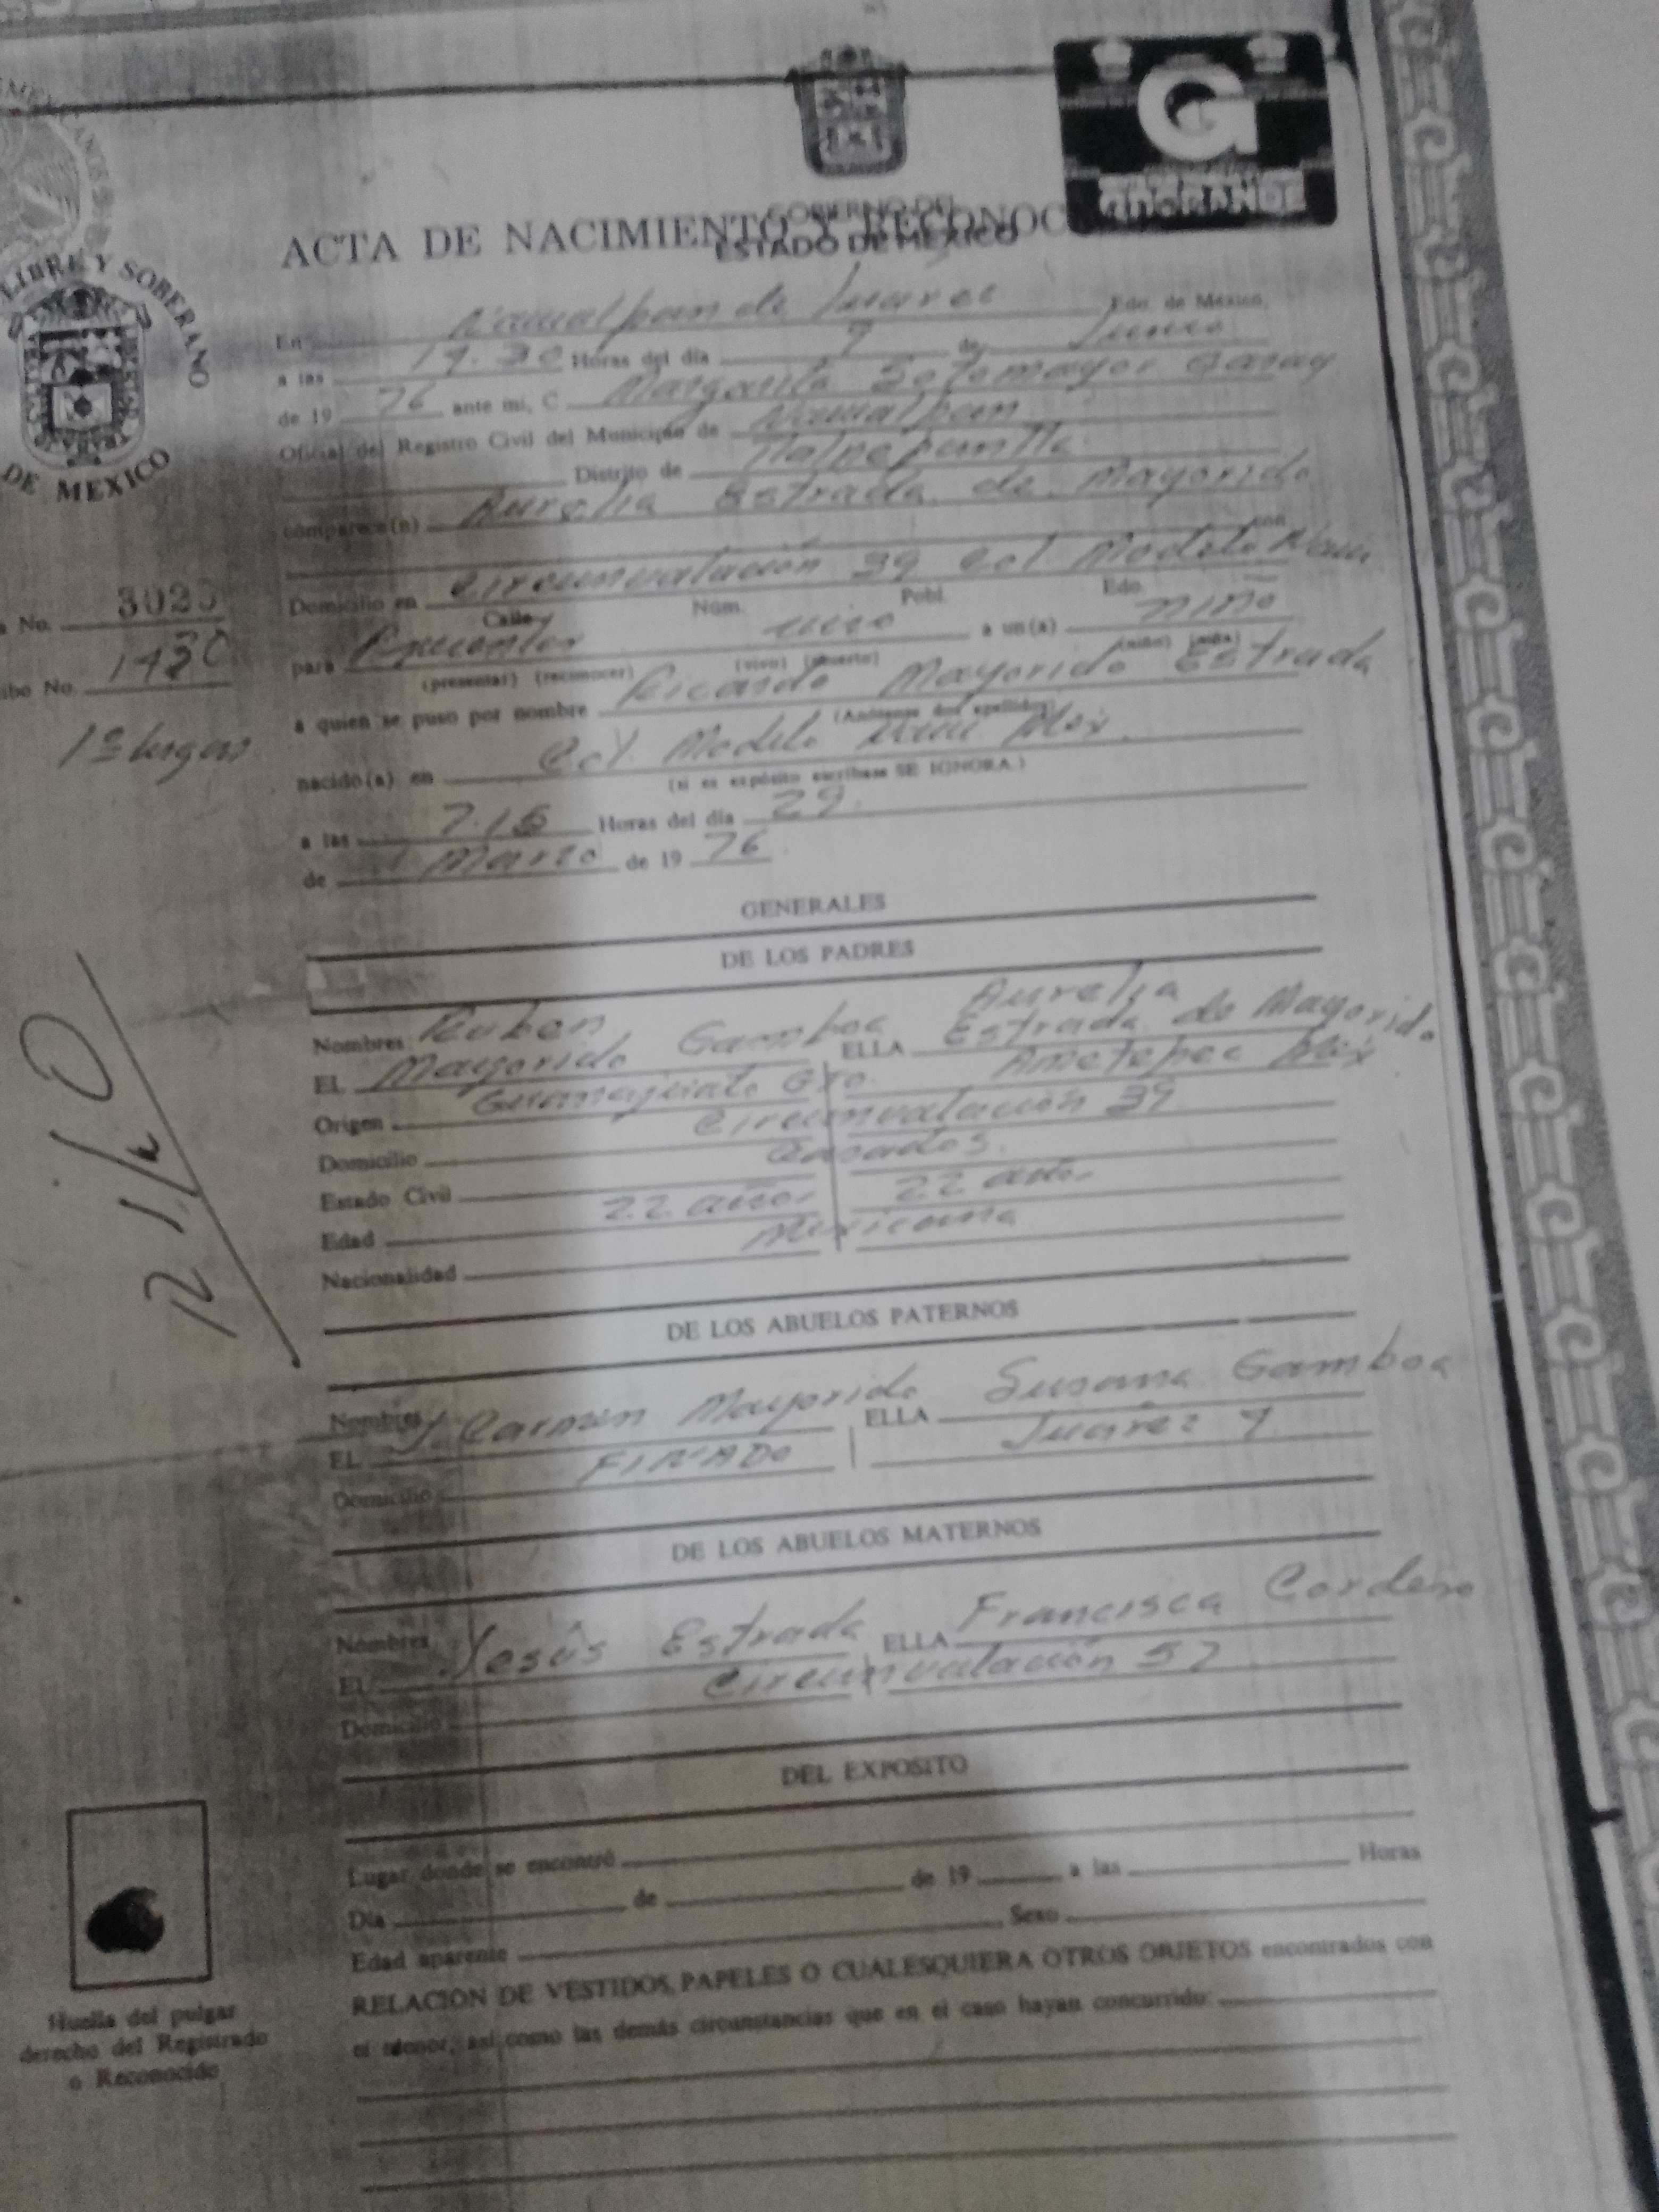 LIBRE Y SOBERANO
DE MEXICO
GOBIERNO DEL
ESTADO DE MEXICO
ACTA DE NACIMIENTO Y RECONOC
En Naucalpan de Juárez Edo. de México,
a las Horas del día 9 de Junio
de 19 76 ante mí, C. Margarita Sotomayor Garay
Oficial del Registro Civil del Municipio de Naucalpan
Distrito de Tlalnepantla
comparece(n) Aurelia Estrada de Mayorido
con
Domicilio en Circunvalación 39 Col. Modelo Nau
Calle Núm. Pobl. Edo.
para Presentar vivo a un(a) niño
(presentar) (reconocer) (vivo) (muerto) (niño) (niña)
a quien se puso por nombre Ricardo Mayorido Estrada
(Anótense dos apellidos)
nacido(a) en Col. Modelo Nau Mex.
(si es expósito escríbase SE IGNORA.)
a las 7.15 Horas del día 29
de Marzo de 19 76
No. 302
ibo No. 1430
GENERALES
DE LOS PADRES
Nombres Ruben Aurelia
EL Mayorido Gamboa ELLA Estrada de Mayorido
Origen Guanajuato Gto. Amatepec Mex
Domicilio Circunvalación 39
Estado Civil Casados.
Edad 22 años 22 años
Nacionalidad Mexicana
DE LOS ABUELOS PATERNOS
Nombres
EL J Carmen Mayorido ELLA Susana Gamboa
Domicilio FINADO Juárez 9
DE LOS ABUELOS MATERNOS
Nombres
EL Jesús Estrada ELLA Francisca Cordero
Domicilio Circunvalación 57
DEL EXPOSITO
Lugar donde se encontró
Día de de 19 a las Horas
Edad aparente Sexo
RELACION DE VESTIDOS, PAPELES O CUALESQUIERA OTROS OBJETOS encontrados con
el menor, así como las demás circunstancias que en el caso hayan concurrido:
Huella del pulgar
derecho del Registrado
o Reconocido